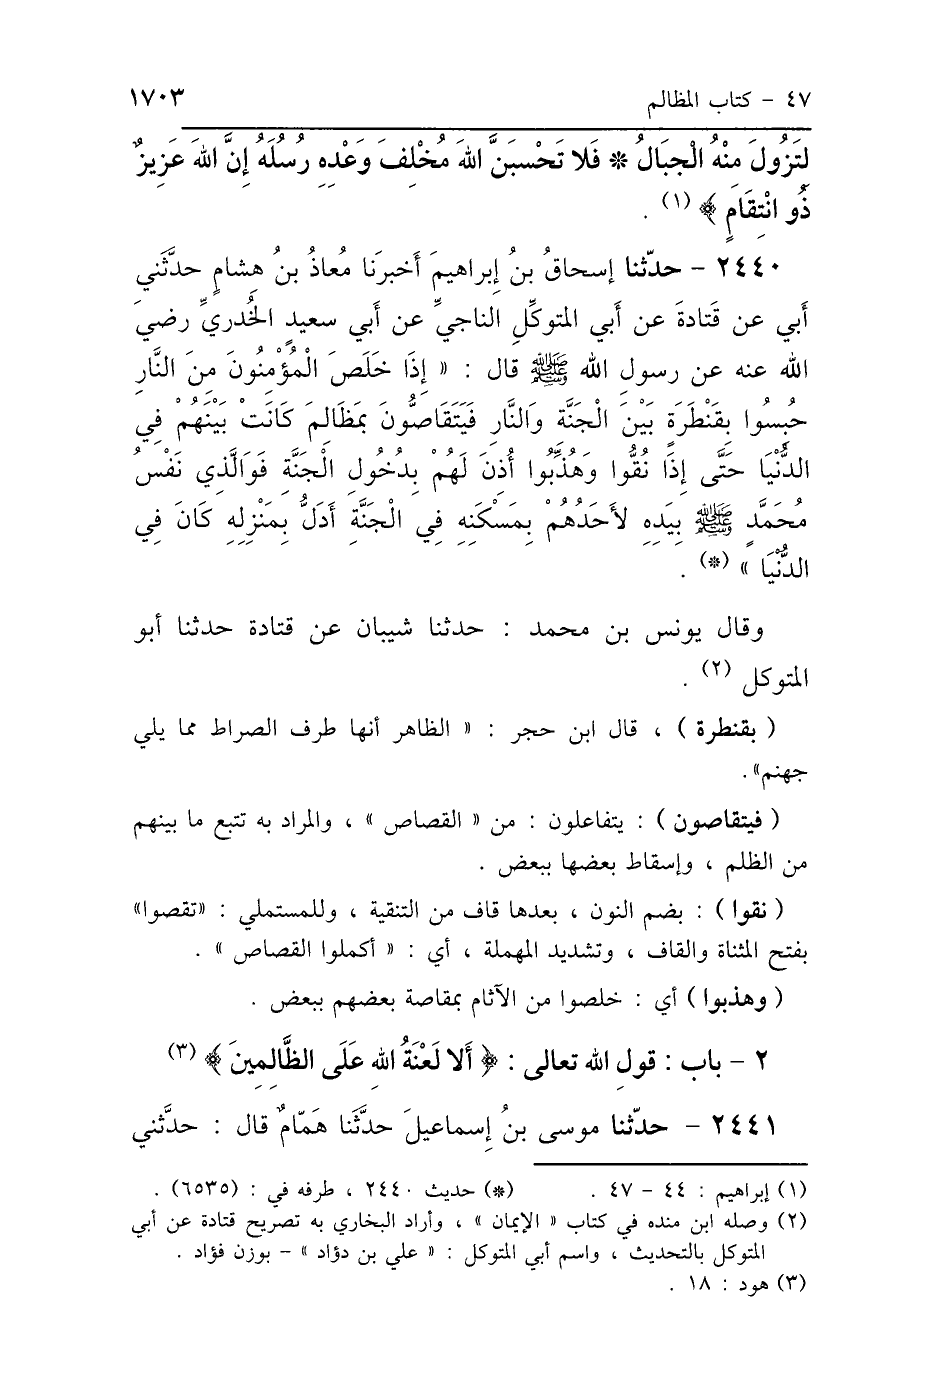 ٤٧ - كتاب المظالم ١٧٠٣
لِتَزُولَ مِنْهُ الْجِبَالُ * فَلا تَحْسَبَنَّ اللهَ مُخْلِفَ وَعْدِهِ رُسُلَهُ إِنَّ اللهَ عَزِيزٌ
ذُو انْتِقَامٍ ﴾ (١) .
٢٤٤٠ - حدّثنا إسحاقُ بنُ إبراهيمَ أخبرَنا مُعاذُ بنُ هِشامٍ حدَّثَني
أَبي عن قَتادةَ عن أَبي المتوكِّلِ الناجيِّ عن أَبي سعيدٍ الخُدريِّ رضيَ
الله عنه عن رسولِ الله ﷺ قال : « إِذَا خَلَصَ الْمُؤْمِنُونَ مِنَ النَّارِ
حُبِسُوا بِقَنْطَرَةٍ بَيْنَ الْجَنَّةِ وَالنَّارِ فَيَتَقَاصُّونَ بِمَظَالِمَ كَانَتْ بَيْنَهُمْ فِي
الدُّنْيَا حَتَّى إِذَا نُقُّوا وَهُذِّبُوا أُذِنَ لَهُمْ بِدُخُولِ الْجَنَّةِ فَوَالَّذِي نَفْسُ
مُحَمَّدٍ ﷺ بِيَدِهِ لأَحَدُهُمْ بِمَسْكَنِهِ فِي الْجَنَّةِ أَدَلُّ بِمَنْزِلِهِ كَانَ فِي
الدُّنْيَا » (*) .
وقال يونس بن محمد : حدثنا شيبان عن قتادة حدثنا أبو
المتوكل (٢) .
( بقنطرة ) ، قال ابن حجر : « الظاهر أنها طرف الصراط مما يلي
جهنم» .
( فيتقاصون ) : يتفاعلون : من « القصاص » ، والمراد به تتبع ما بينهم
من الظلم ، وإسقاط بعضها ببعض .
( نقوا ) : بضم النون ، بعدها قاف من التنقية ، وللمستملي : «تقصوا»
بفتح المثناة والقاف ، وتشديد المهملة ، أي : « أكملوا القصاص » .
( وهذبوا ) أي : خلصوا من الآثام بمقاصة بعضهم ببعض .
٢ - باب : قول الله تعالى : ﴿ أَلا لَعْنَةُ اللهِ عَلَى الظَّالِمِينَ ﴾ (٣)
٢٤٤١ - حدّثنا موسى بنُ إِسماعيلَ حدَّثَنا هَمّامٌ قال : حدَّثَني
(١) إبراهيم : ٤٤ - ٤٧ . (*) حديث ٢٤٤٠ ، طرفه في : (٦٥٣٥) .
(٢) وصله ابن منده في كتاب « الإيمان » ، وأراد البخاري به تصريح قتادة عن أبي
المتوكل بالتحديث ، واسم أبي المتوكل : « علي بن دؤاد » - بوزن فؤاد .
(٣) هود : ١٨ .